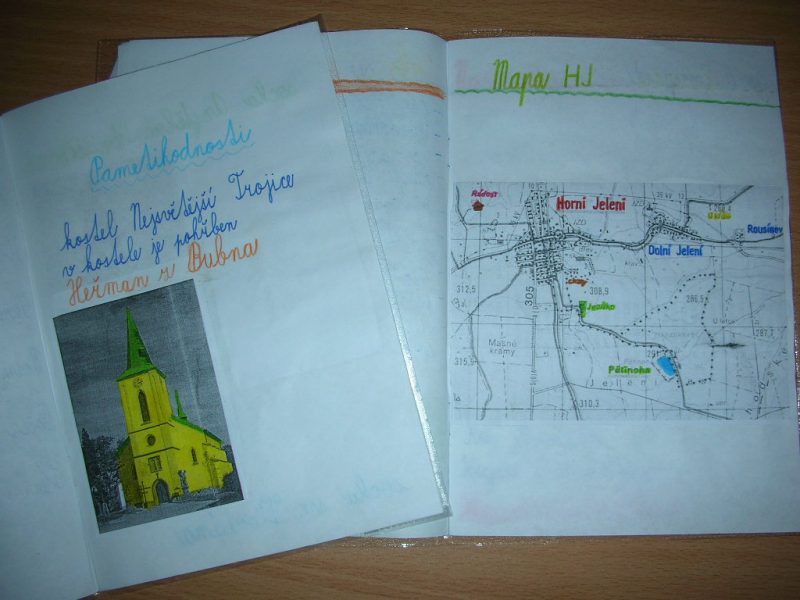 Pametihodnosti
kostel Nejsvětější Trojice
v kostele je pohřben
Heřman z Bubna
Mapa HJ
Radost
Horní Jelení
Dolní Jelení
Rousínov
312,9
305
308,9
286,5
287,3
315,9
Masné
krámy
Pětinoha
Jelení
310,3